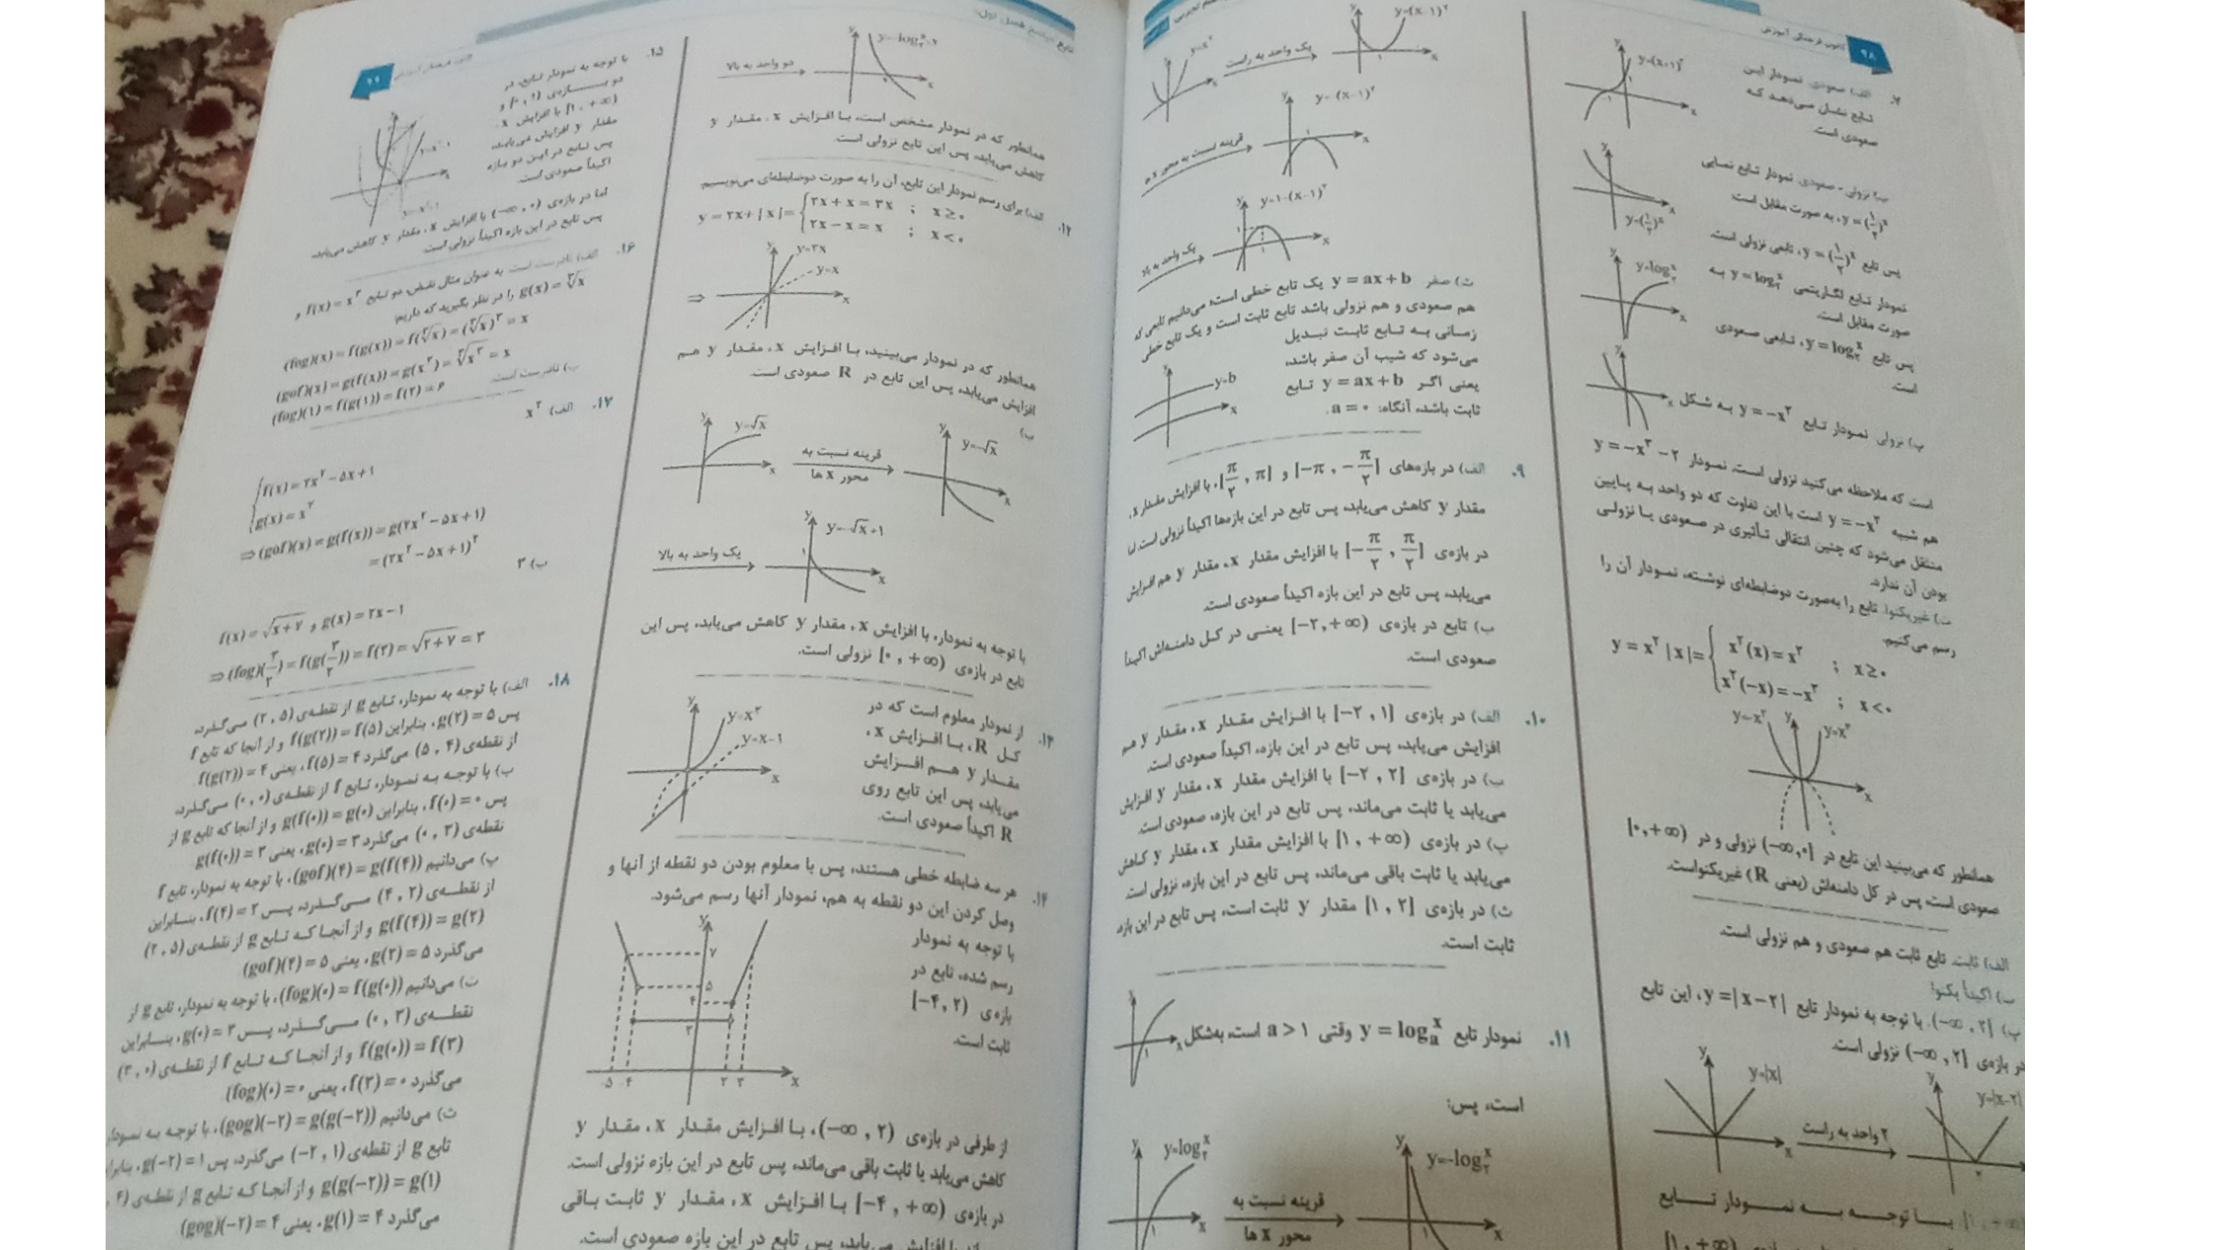 ۹۸
کانون فرهنگی آموزش
الف) صعودی. نمودار این
تابع نشان می‌دهد که
صعودی است.
y=(x+1)³
ب) نزولی - صعودی. نمودار تابع نمایی
y=(۱/۲)ˣ، به صورت مقابل است
پس تابع y=(۱/۲)ˣ، تابعی نزولی است.
نمودار تابع لگاریتمی y=log₂ˣ به
صورت مقابل است.
پس تابع y=log₂ˣ، تابعی صعودی
است.
y=(۱/۲)ˣ
y=log₂ˣ
پ) نزولی نمودار تابع y=−x³ به شکل
است که ملاحظه می‌کنید نزولی است. نمودار y=−x³−۲
هم شبیه y=−x³ است با این تفاوت که دو واحد به پایین
منتقل می‌شود که چنین انتقالی تأثیری در صعودی یا نزولی
بودن آن ندارد.
ت) غیریکنوا. تابع را به‌صورت دوضابطه‌ای نوشته، نمودار آن را
رسم می‌کنیم.
y=x²|x|={ x²(x)=x³ ; x≥۰
x²(−x)=−x³ ; x<۰
y=−x³ y=x³
همانطور که می‌بینید این تابع در (−∞,۰] نزولی و در [۰,+∞)
صعودی است، پس در کل دامنه‌اش (یعنی R) غیریکنواست.
الف) ثابت. تابع ثابت هم صعودی و هم نزولی است.
ب) اکیداً یکنوا
پ) (−∞,۲]. با توجه به نمودار تابع y=|x−۲|، این تابع
در بازه‌ی (−∞,۲] نزولی است.
y=|x|
۲ واحد به راست
y=|x−۲|
با توجه به نمودار تابع
y=x²
یک واحد به راست
y=(x−۱)²
قرینه نسبت به محور x ها
y=−(x−۱)²
یک واحد به بالا
y=۱−(x−۱)²
ث) صفر y=ax+b یک تابع خطی است، می‌دانیم تابعی که
هم صعودی و هم نزولی باشد تابع ثابت است و یک تابع خطی
زمانی به تابع ثابت تبدیل
می‌شود که شیب آن صفر باشد،
یعنی اگر y=ax+b تابع
ثابت باشد، آنگاه: a=۰.
y=b
۹. الف) در بازه‌های [−π,−π/۲] و [π/۲,π]، با افزایش مقدار x،
مقدار y کاهش می‌یابد، پس تابع در این بازه‌ها اکیداً نزولی است. اما
در بازه‌ی [−π/۲,π/۲] با افزایش مقدار x، مقدار y هم افزایش
می‌یابد، پس تابع در این بازه اکیداً صعودی است.
ب) تابع در بازه‌ی [−۲,+∞) یعنی در کل دامنه‌اش اکیداً
صعودی است.
۱۰. الف) در بازه‌ی [−۲,۱] با افزایش مقدار x، مقدار y هم
افزایش می‌یابد، پس تابع در این بازه، اکیداً صعودی است.
ب) در بازه‌ی [−۲,۲] با افزایش مقدار x، مقدار y افزایش
می‌یابد یا ثابت می‌ماند، پس تابع در این بازه، صعودی است.
پ) در بازه‌ی [۱,+∞) با افزایش مقدار x، مقدار y کاهش
می‌یابد یا ثابت باقی می‌ماند، پس تابع در این بازه، نزولی است.
ث) در بازه‌ی [۱,۲] مقدار y ثابت است، پس تابع در این بازه
ثابت است.
۱۱. نمودار تابع y=logₐˣ وقتی a>۱ است، به‌شکل
است، پس:
y=log₂ˣ
قرینه نسبت به
محور x ها
y=−log₂ˣ
دو واحد به بالا
همانطور که در نمودار مشخص است، با افزایش x، مقدار y
کاهش می‌یابد، پس این تابع نزولی است.
۱۲. الف) برای رسم نمودار این تابع، آن را به صورت دوضابطه‌ای می‌نویسیم.
y=۲x+|x|={ ۲x+x=۳x ; x≥۰
۲x−x=x ; x<۰
⇒ y=۳x y=x
همانطور که در نمودار می‌بینید، با افزایش x، مقدار y هم
افزایش می‌یابد، پس این تابع در R صعودی است.
ب)
y=√x
قرینه نسبت به
محور x ها
y=−√x
یک واحد به بالا
y=−√x+۱
با توجه به نمودار، با افزایش x، مقدار y کاهش می‌یابد، پس این
تابع در بازه‌ی [۰,+∞) نزولی است.
۱۳. از نمودار معلوم است که در
کل R، با افزایش x،
مقدار y هم افزایش
می‌یابد، پس این تابع روی
R اکیداً صعودی است.
y=x³
y=x−۱
۱۴. هر سه ضابطه خطی هستند، پس با معلوم بودن دو نقطه از آنها و
وصل کردن این دو نقطه به هم، نمودار آنها رسم می‌شود.
با توجه به نمودار
رسم شده، تابع در
بازه‌ی [−۴,۲)
ثابت است.
از طرفی در بازه‌ی (−∞,۲)، با افزایش مقدار x، مقدار y
کاهش می‌یابد یا ثابت باقی می‌ماند، پس تابع در این بازه نزولی است.
در بازه‌ی [−۴,+∞) با افزایش x، مقدار y ثابت باقی
می‌یابد، پس تابع در این بازه صعودی است.
۹۹
۱۵. با توجه به نمودار تابع، در
دو بازه‌ی [۰,۱) و
[۱,+∞) با افزایش x،
مقدار y افزایش می‌یابد،
پس تابع در این دو بازه
اکیداً صعودی است.
اما در بازه‌ی (−∞,۰) با افزایش x، مقدار y کاهش می‌یابد،
پس تابع در این بازه اکیداً نزولی است.
۱۶. الف) نادرست است. به عنوان مثال نقض، دو تابع f(x)=x³ و
g(x)=∛x را در نظر بگیرید که داریم:
(fog)(x)=f(g(x))=f(∛x)=(∛x)³=x
(gof)(x)=g(f(x))=g(x³)=∛x³=x
ب) نادرست است.
(fog)(۱)=f(g(۱))=f(۲)=۶
۱۷. الف) x²
{ f(x)=۲x²−۵x+۱
g(x)=x²
⇒(gof)(x)=g(f(x))=g(۲x²−۵x+۱)
=(۲x²−۵x+۱)²
ب) ۳
f(x)=√x+۷ و g(x)=۲x−۱
⇒(fog)(۳/۲)=f(g(۳/۲))=f(۲)=√۲+۷=۳
۱۸. الف) با توجه به نمودار، تابع g از نقطه‌ی (۲,۵) می‌گذرد،
پس g(۲)=۵، بنابراین f(g(۲))=f(۵) و از آنجا که تابع f
از نقطه‌ی (۵,۴) می‌گذرد f(۵)=۴، یعنی f(g(۲))=۴.
ب) با توجه به نمودار، تابع f از نقطه‌ی (۰,۰) می‌گذرد،
پس f(۰)=۰، بنابراین g(f(۰))=g(۰) و از آنجا که تابع g از
نقطه‌ی (۰,۳) می‌گذرد g(۰)=۳، یعنی g(f(۰))=۳
پ) می‌دانیم (gof)(۴)=g(f(۴))، با توجه به نمودار، تابع f
از نقطه‌ی (۴,۲) می‌گذرد، پس f(۴)=۲، بنابراین
g(f(۴))=g(۲) و از آنجا که تابع g از نقطه‌ی (۲,۵)
می‌گذرد g(۲)=۵، یعنی (gof)(۴)=۵
ت) می‌دانیم (fog)(۰)=f(g(۰))، با توجه به نمودار، تابع g از
نقطه‌ی (۰,۳) می‌گذرد، پس g(۰)=۳، بنابراین
f(g(۰))=f(۳) و از آنجا که تابع f از نقطه‌ی (۳,۰)
می‌گذرد f(۳)=۰، یعنی (fog)(۰)=۰
ث) می‌دانیم (gog)(−۲)=g(g(−۲))، با توجه به نمودار
تابع g از نقطه‌ی (−۲,۱) می‌گذرد، پس g(−۲)=۱،
g(g(−۲))=g(۱) و از آنجا که تابع g از نقطه‌ی
می‌گذرد g(۱)=۴، یعنی (gog)(−۲)=۴